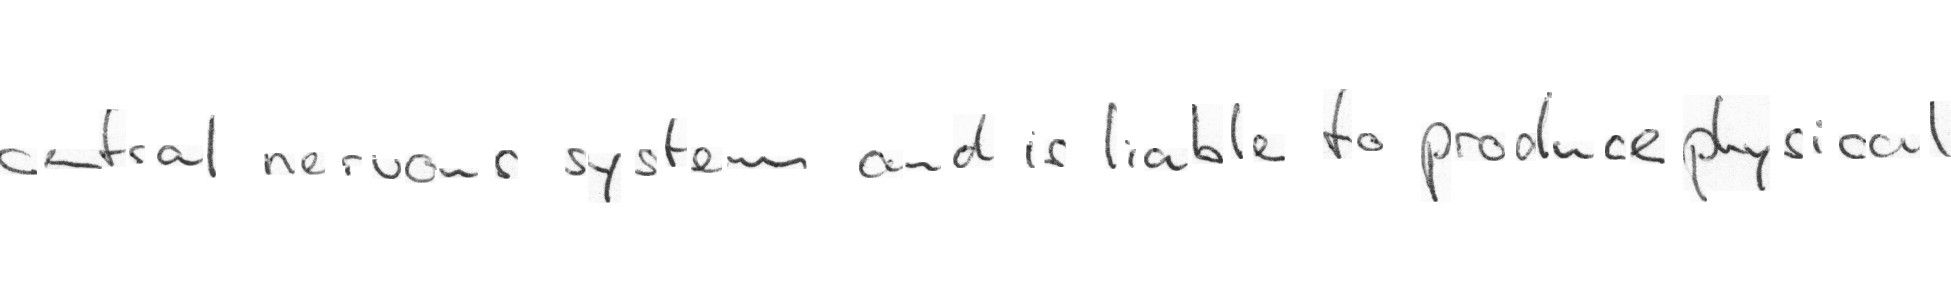 central nervous system and is liable to produce physical